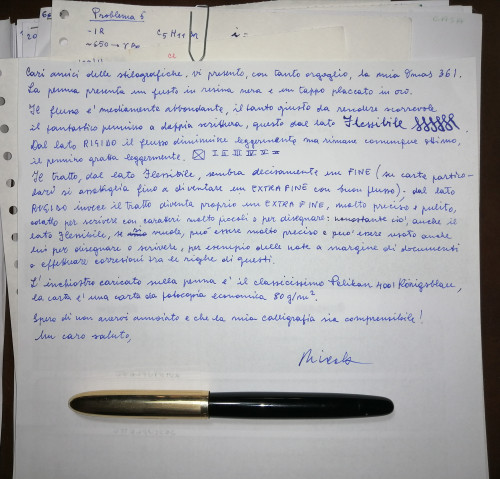 Problema 6
- IR
~650 → γ
C5H11Br
i =
Cari amici delle stilografiche, vi presento, con tanto orgoglio, la mia Omas 361.
La penna presenta un fusto in resina nera e un tappo placcato in oro.
Il flusso e' mediamente abbondante, il tanto giusto da rendere scorrevole
il fantastico pennino a doppia scrittura, questo dal lato Flessibile
Dal lato RIGIDO il flusso diminuisce leggermente ma rimane comunque ottimo,
il pennino gratta leggermente.
Il tratto, dal lato Flessibile, sembra decisamente un FINE (su carte partico-
lari si assottiglia fino a diventare un EXTRA FINE con buon flusso); dal lato
RIGIDO invece il tratto diventa proprio un EXTRA FINE, molto preciso e pulito,
adatto per scrivere con caratteri molto piccoli o per disegnare: nonostante cio', anche il
lato Flessibile, se si vuole, può essere molto preciso e puo' essere usato anche
lui per disegnare o scrivere, per esempio delle note a margine di documenti
o effettuare correzioni tra le righe di questi.
L'inchiostro caricato sulla penna e' il classicissimo Pelikan 4001 Königsblau,
la carta e' una carta da fotocopia economica 80 g/m².
Spero di non avervi annoiato e che la mia calligrafia sia comprensibile!
Un caro saluto,